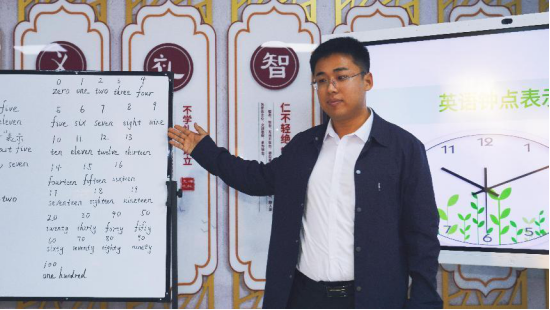 义
礼
智
不学礼
立
仁不轻绝
英语钟点表示
11 12 1
10 2
7 6 5
0 1 2 3 4
zero one two three four
5 6 7 8 9
five six seven eight nine
10 11 12 13
ten eleven twelve thirteen
14 15 16
fourteen fifteen sixteen
17 18 19
seventeen eighteen nineteen
20 30 40 50
twenty thirty forty fifty
60 70 80 90
sixty seventy eighty ninety
100
one hundred
five
eleven
表示
out five
y seven
two